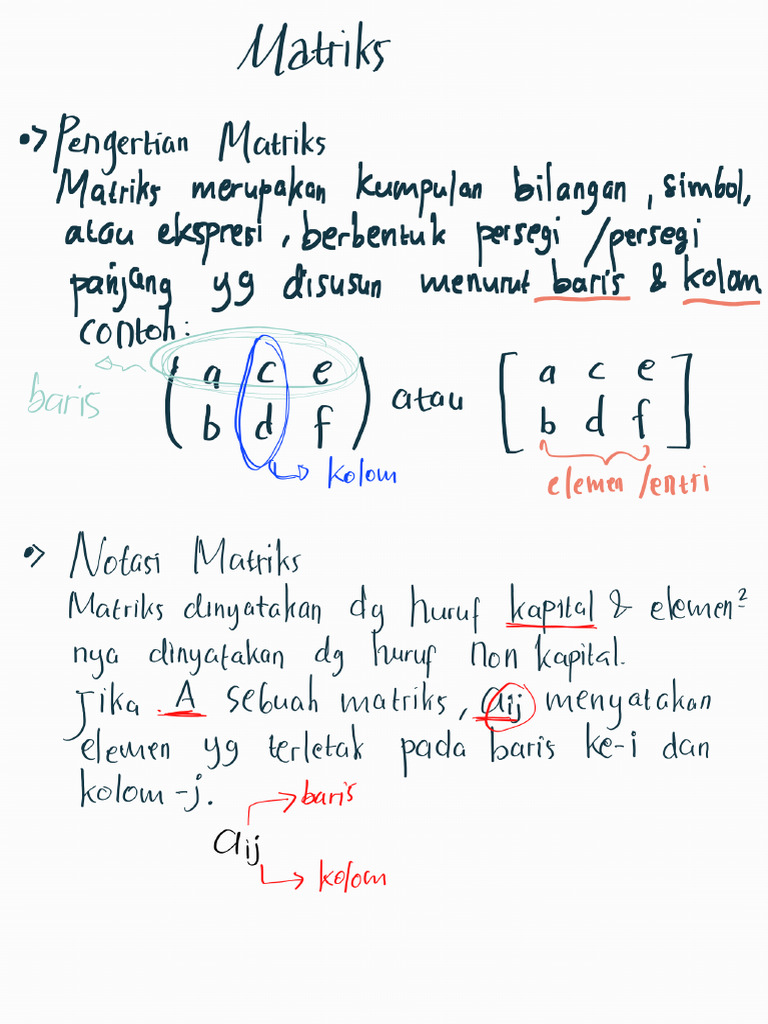 Matriks
•> Pengertian Matriks
Matriks merupakan kumpulan bilangan, simbol,
atau ekspresi, berbentuk persegi /persegi
panjang yg disusun menurut baris & kolom
contoh:
baris
( a c e ) atau [ a c e ]
( b d f ) [ b d f ]
kolom
elemen /entri
•> Notasi Matriks
Matriks dinyatakan dg huruf kapital & elemen²
nya dinyatakan dg huruf non kapital.
Jika A sebuah matriks, aij menyatakan
elemen yg terletak pada baris ke-i dan
kolom -j.
baris
aij
kolom